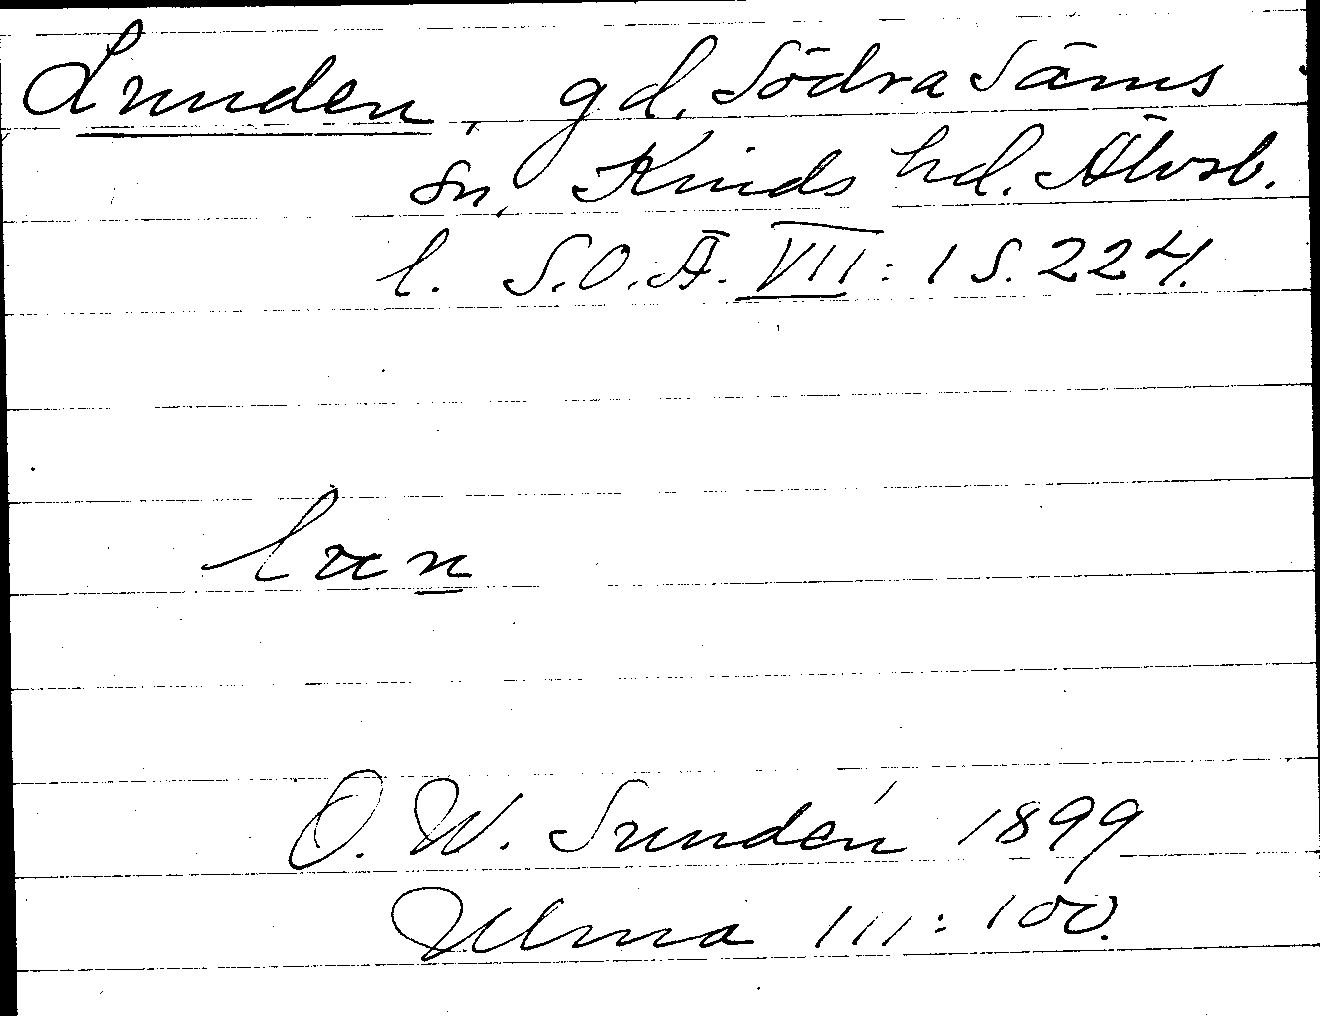 Lunden, gd, Södra Säms
sn, Kinds hd. Älvsb.
l. S.O.Ä. VII: 1 S. 224.
O. W. Sundén 1899
Ulma 111:100.